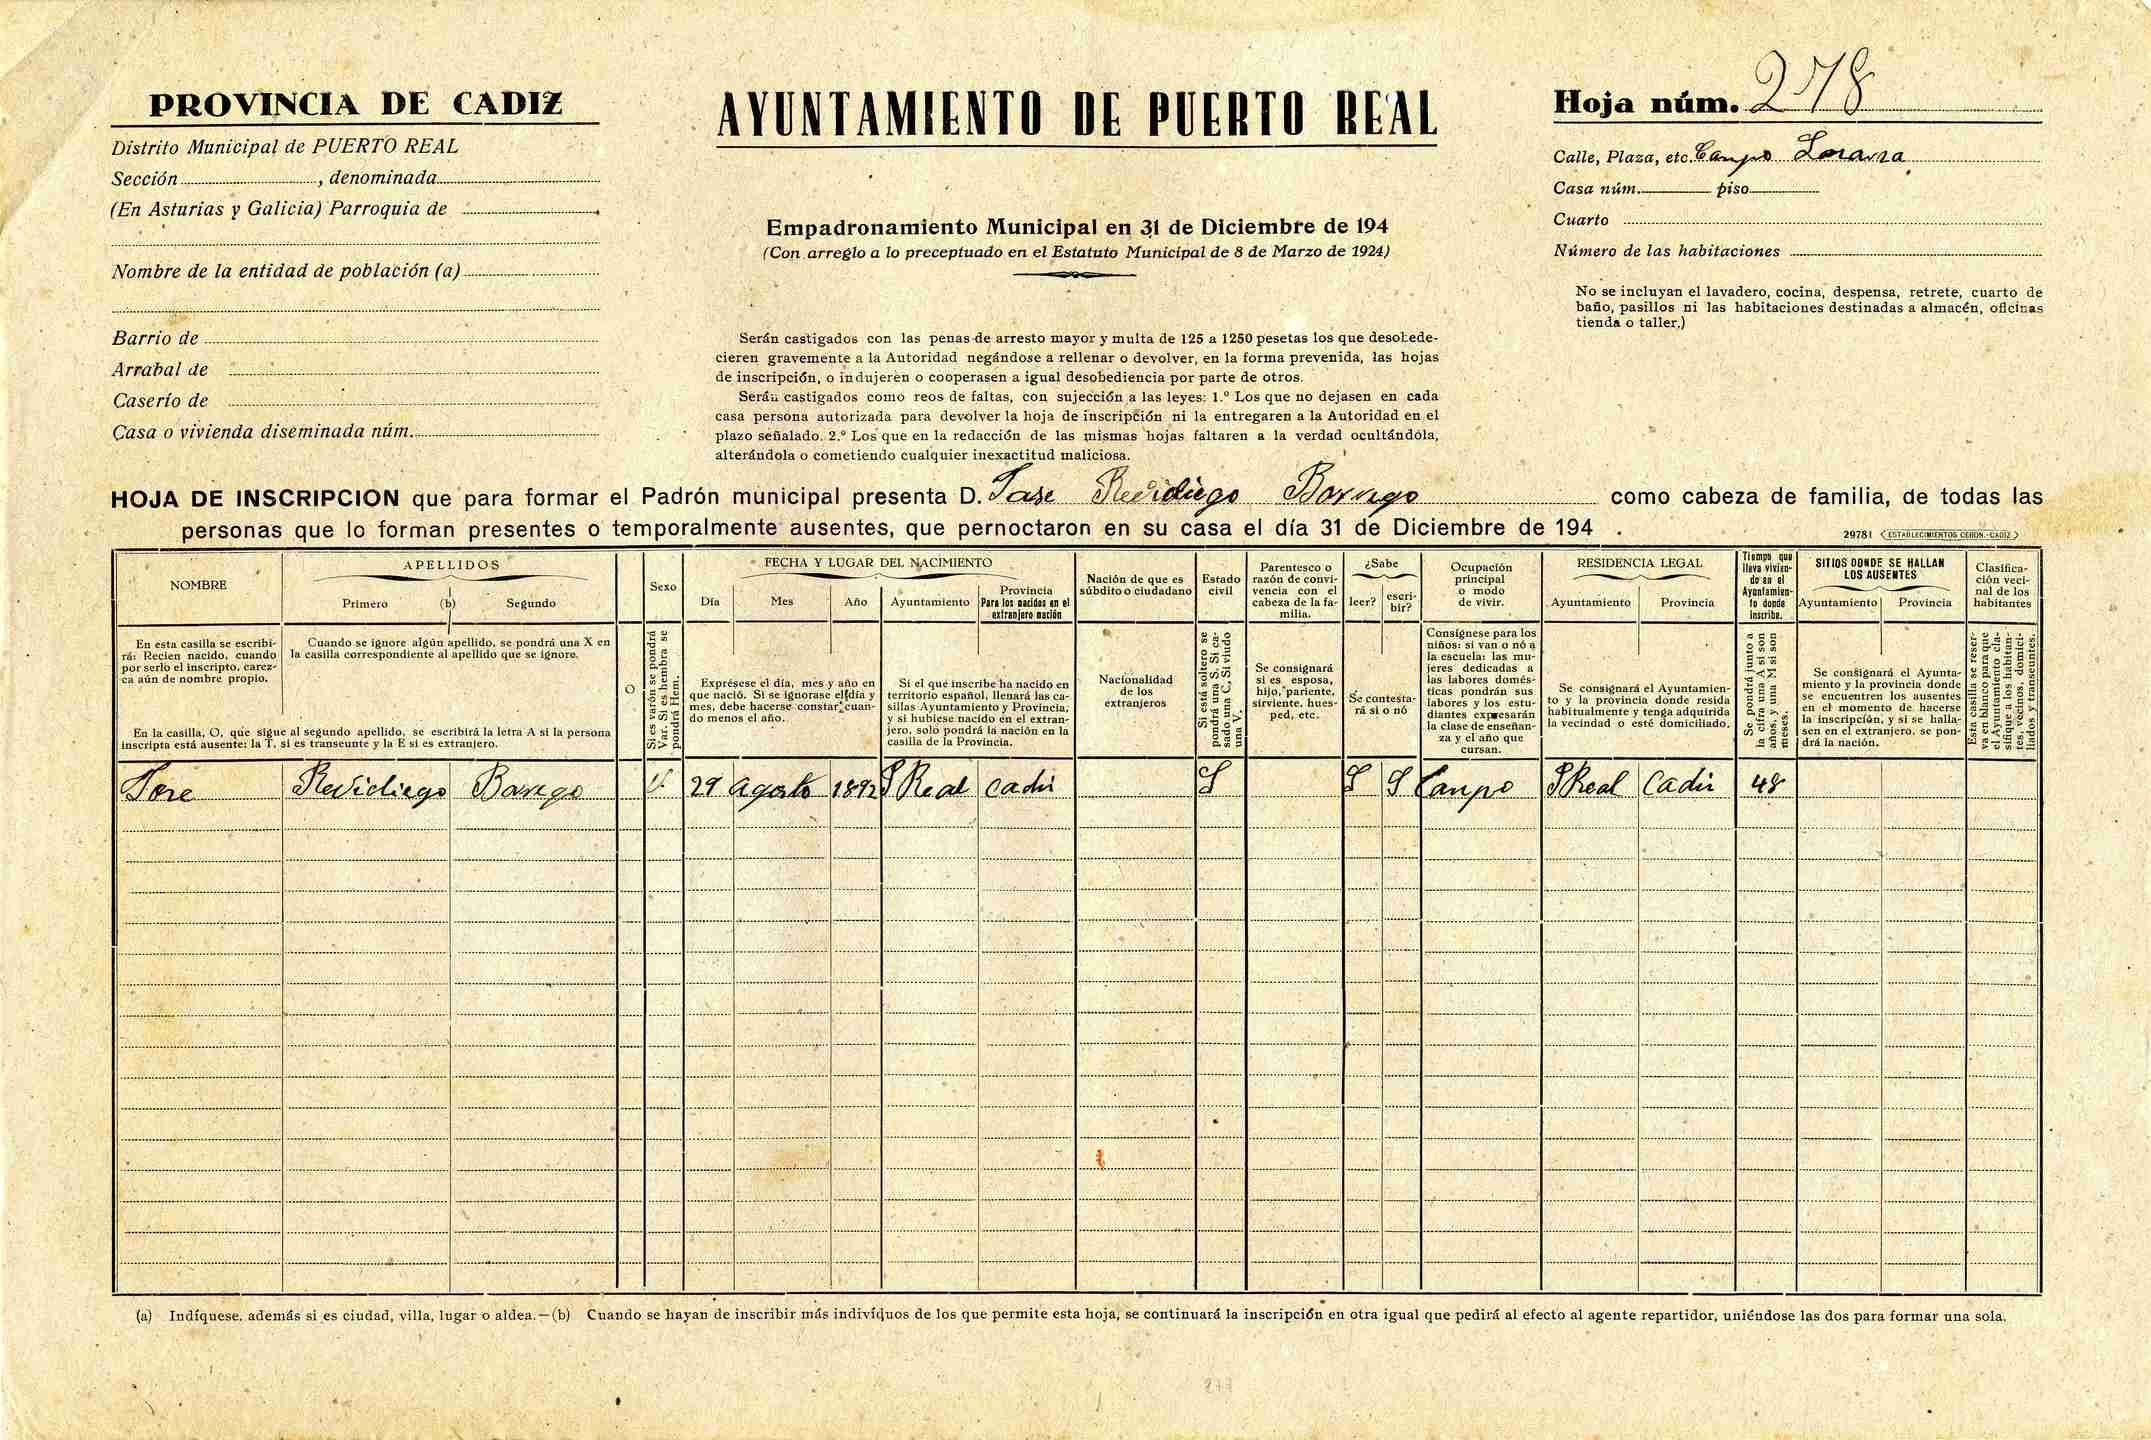 PROVINCIA DE CADIZ
Distrito Municipal de PUERTO REAL
Sección , denominada
(En Asturias y Galicia) Parroquia de
Nombre de la entidad de población (a)
Barrio de
Arrabal de
Caserío de
Casa o vivienda diseminada núm.
AYUNTAMIENTO DE PUERTO REAL
Empadronamiento Municipal en 31 de Diciembre de 194
(Con arreglo a lo preceptuado en el Estatuto Municipal de 8 de Marzo de 1924)
Serán castigados con las penas de arresto mayor y multa de 125 a 1250 pesetas los que desobede-
cieren gravemente a la Autoridad negándose a rellenar o devolver, en la forma prevenida, las hojas
de inscripción, o indujeren o cooperasen a igual desobediencia por parte de otros.
Serán castigados como reos de faltas, con sujección a las leyes: 1.º Los que no dejasen en cada
casa persona autorizada para devolver la hoja de inscripción ni la entregaren a la Autoridad en el
plazo señalado. 2.º Los que en la redacción de las mismas hojas faltaren a la verdad ocultándola,
alterándola o cometiendo cualquier inexactitud maliciosa.
Hoja núm. 278
Calle, Plaza, etc. Campo
Casa núm. piso
Cuarto
Número de las habitaciones
No se incluyan el lavadero, cocina, despensa, retrete, cuarto de
baño, pasillos ni las habitaciones destinadas a almacén, oficinas
tienda o taller.)
HOJA DE INSCRIPCION que para formar el Padrón municipal presenta D. Jose Revidiego Borrego como cabeza de familia, de todas las
personas que lo forman presentes o temporalmente ausentes, que pernoctaron en su casa el día 31 de Diciembre de 194 .
29781 ESTABLECIMIENTOS CERON.-CADIZ
NOMBRE
APELLIDOS
Primero (b) Segundo
Sexo
FECHA Y LUGAR DEL NACIMIENTO
Día Mes Año Ayuntamiento
Provincia
Para los nacidos en el
extranjero nación
Nación de que es
súbdito o ciudadano
Estado
civil
Parentesco o
razón de convi-
vencia con el
cabeza de la fa-
milia.
¿Sabe
leer? escri-
bir?
Ocupación
principal
o modo
de vivir.
RESIDENCIA LEGAL
Ayuntamiento Provincia
Tiempo que
lleva vivien-
do en el
Ayuntamien-
to donde
inscribe.
SITIOS DONDE SE HALLAN
LOS AUSENTES
Ayuntamiento Provincia
Clasifica-
ción veci-
nal de los
habitantes
En esta casilla se escribi-
rá: Recien nacido, cuando
por serlo el inscripto, carez-
ca aún de nombre propio.
Cuando se ignore algún apellido, se pondrá una X en
la casilla correspondiente al apellido que se ignore.
En la casilla, O, que sigue al segundo apellido, se escribirá la letra A si la persona
inscripta está ausente: la T, si es transeunte y la E si es extranjero.
O
Si es varón se pondrá
Var. Si es hembra se
pondrá Hem.
Exprésese el día, mes y año en
que nació. Si se ignorase el día y
mes, debe hacerse constar cuan-
do menos el año.
Si el que inscribe ha nacido en
territorio español, llenará las ca-
sillas Ayuntamiento y Provincia,
y si hubiese nacido en el extran-
jero, solo pondrá la nación en la
casilla de la Provincia.
Nacionalidad
de los
extranjeros
Si está soltero se
pondrá una S. Si ca-
sado una C, Si viudo
una V.
Se consignará
si es esposa,
hijo, pariente,
sirviente, hues-
ped, etc.
Se contesta-
rá si o nó
Consígnese para los
niños: si van o nó a
la escuela: las mu-
jeres dedicadas a
las labores domés-
ticas pondrán sus
labores y los estu-
diantes expresarán
la clase de enseñan-
za y el año que
cursan.
Se consignará el Ayuntamien-
to y la provincia donde resida
habitualmente y tenga adquirida
la vecindad o esté domiciliado.
Se pondrá junto a
la cifra una A si son
años, y una M si son
meses.
Se consignará el Ayunta-
miento y la provincia donde
se encuentren los ausentes
en el momento de hacerse
la inscripción, y si se halla-
sen en el extranjero, se pon-
drá la nación.
Esta casilla se reser-
va en blanco para que
el Ayuntamiento cla-
sifique a los habitan-
tes, vecinos, domici-
liados y transeuntes.
Jose Revidiego Borrego V. 29 Agosto 1892 P Real Cadiz S S S Campo P Real Cadiz 48
(a) Indíquese, además si es ciudad, villa, lugar o aldea.—(b) Cuando se hayan de inscribir más indivíduos de los que permite esta hoja, se continuará la inscripción en otra igual que pedirá al efecto al agente repartidor, uniéndose las dos para formar una sola.
277